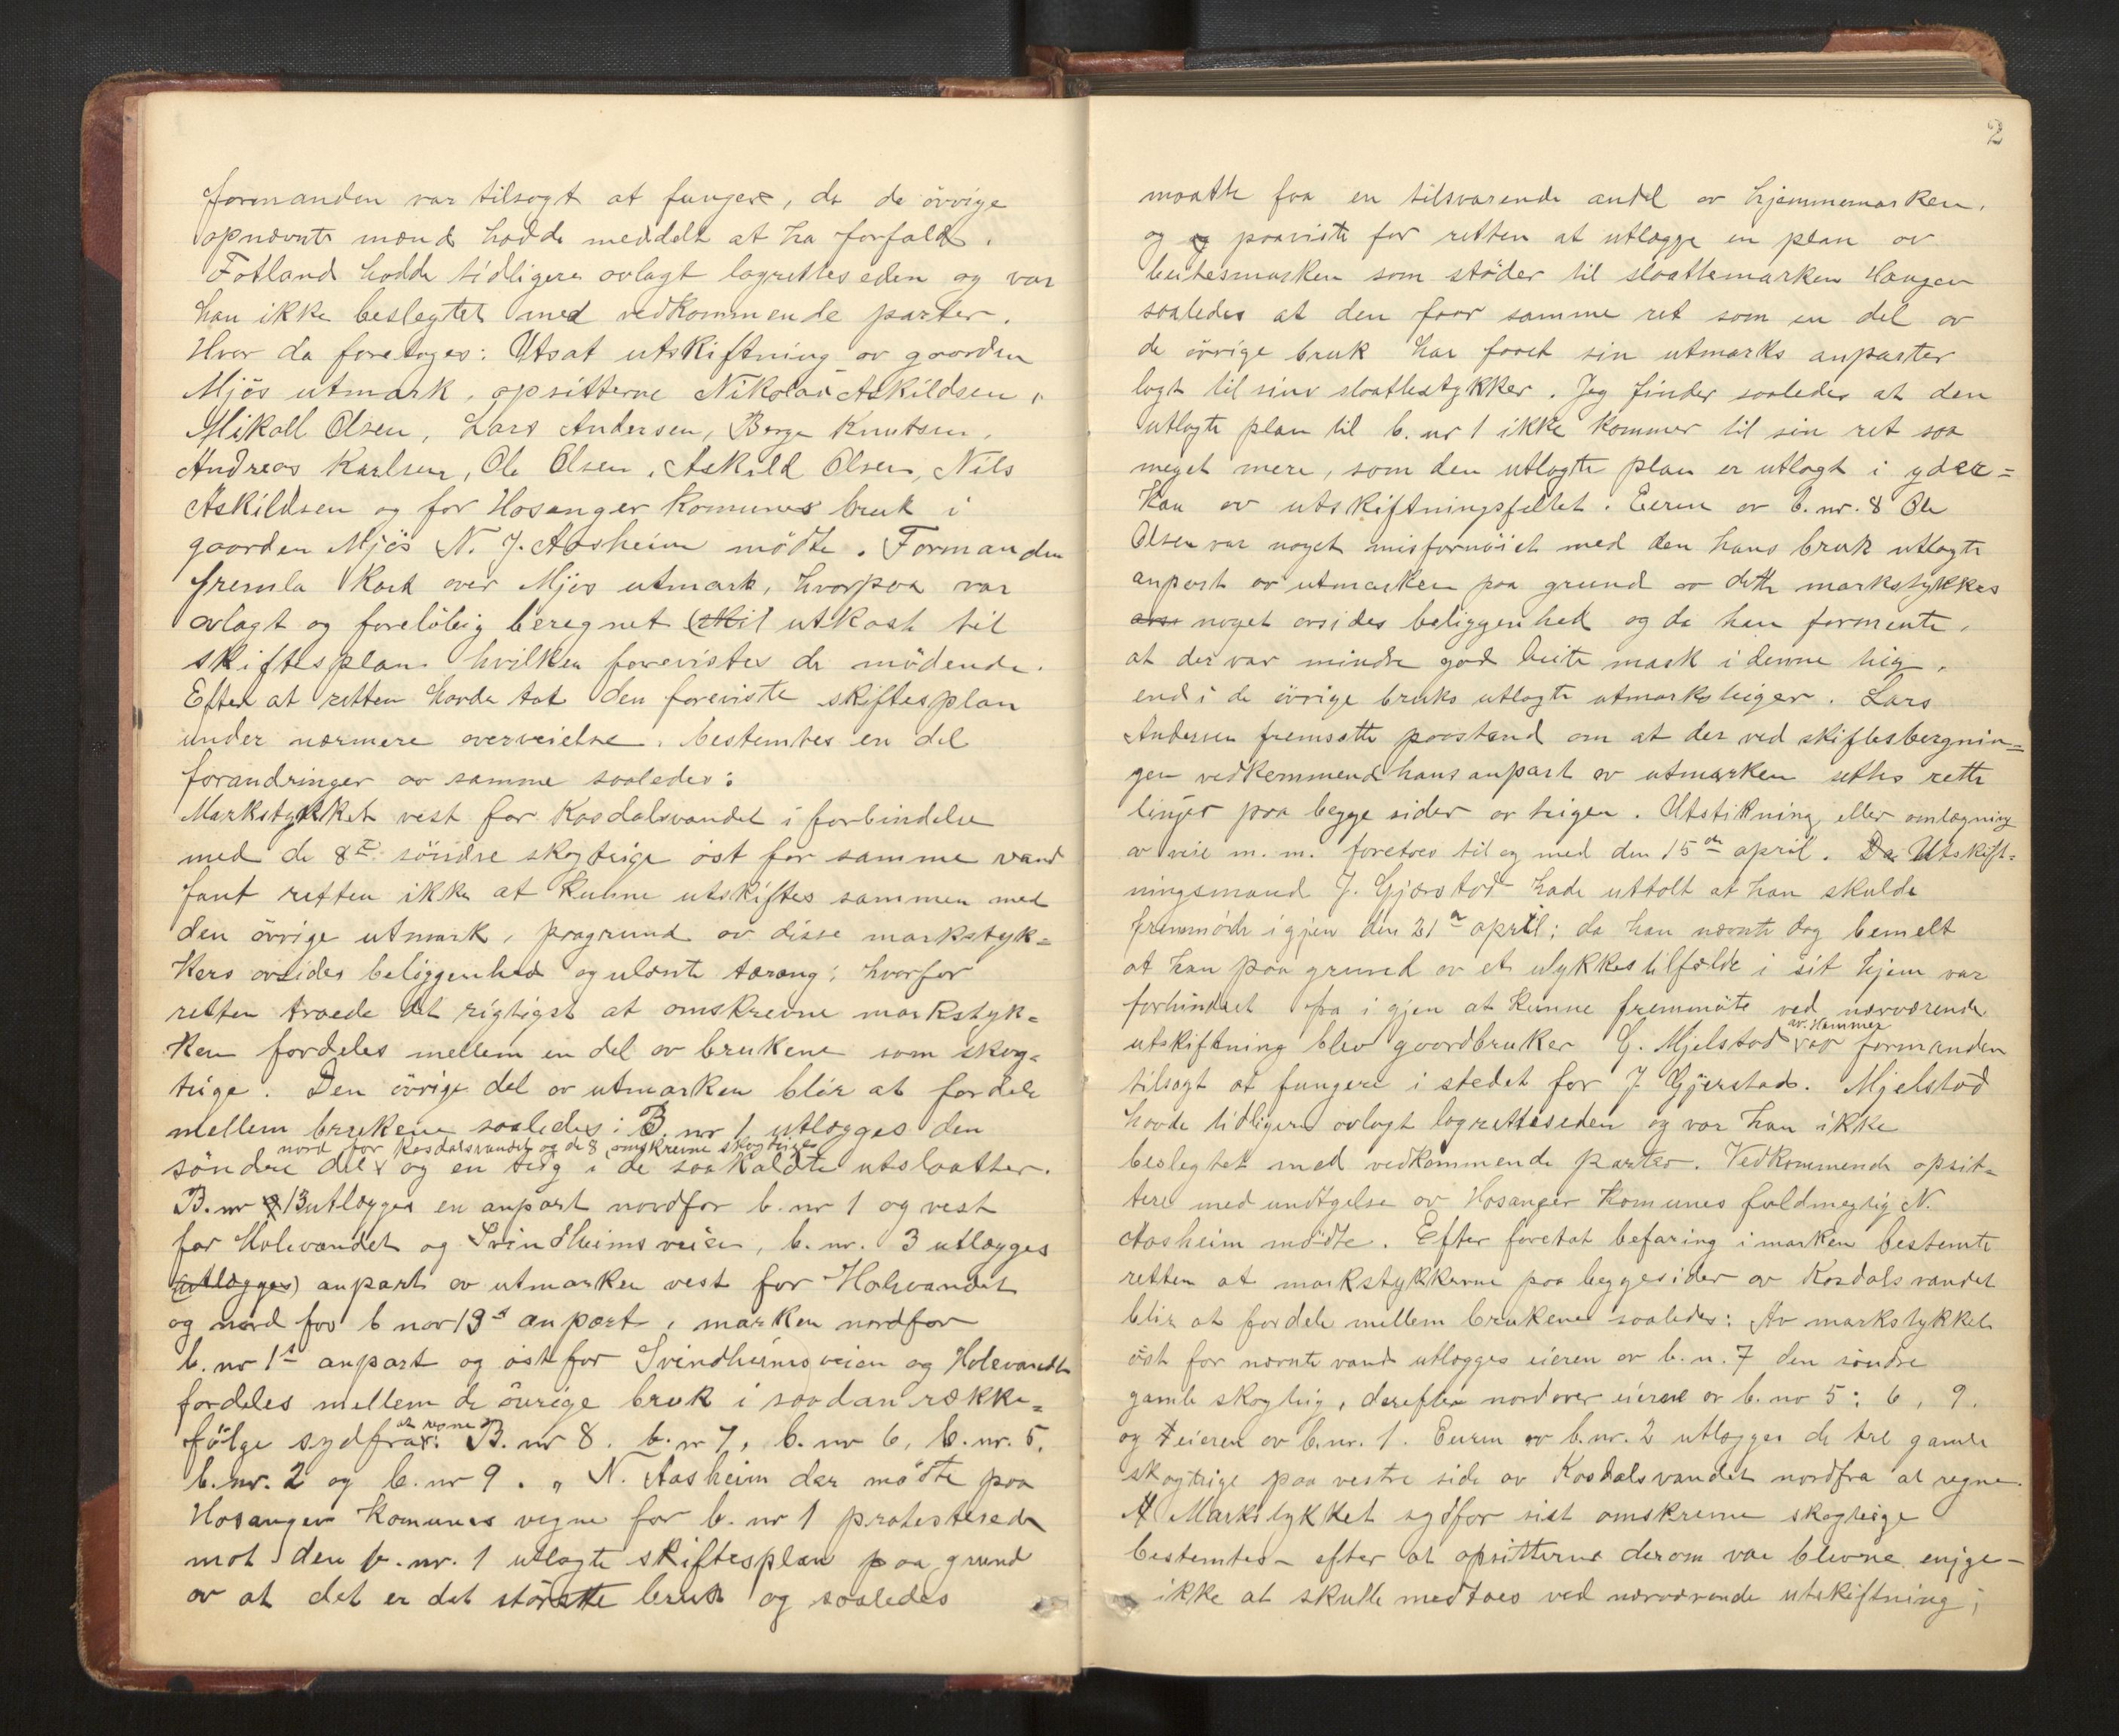 formanden var tilsagt at fungere, da de övrige
opnævnte mænd hadde meddelt at ha forfald.
Fotland hadde tidligere avlagt lagrettes eden og var
han ikke beslegtet med vedkommende parter.
Hvor da foretoges: Utsat utskiftning av gaarden
Mjös utmark, opsitterne Nikolai Askildsen,
Mikall Olsen, Lars Andersen, Berge Knutsen,
Andreas Karlsen, Ole Olsen, Askild Olsen, Nils
Askildsen og for Hosanger Komunes bruk i
gaarden Mjös N. J. Aasheim mödte. Formanden
fremla kart over Mjös utmark, hvorpaa var
avlagt og forelöbig beregnet utkast til
skiftesplan hvilken forevistes de mödende.
Efter at retten havde tat den foreviste skiftesplan
under nærmere overveielse, bestemtes en del
forandringer av samme saaledes:
Markstykket vest for Kosdalsvandet i forbindelse
med de 8 söndre skogteige öst for samme vand
fant retten ikke at kunne utskiftes sammen med
den övrige utmark, paagrund av disse markstyk=
kers avsides beliggenhed og ulænte terræng; hvorfor
retten troede det rigtigst at omskrevne markstyk=
ker fordeles mellem en del av brukene som skog=
teige. Den övrige del av utmarken blir at fordele
mellem brukene saaledes: B. nr 1 utlægges den
nord for Kosdalsvandet og de 8 omskrevne skogteige
söndre del og en teig i de saakaldte utslaatter.
B. nr 13 utlægges en anpart nordfor b. nr 1 og vest
for Holevandet og Svindheimsveien, b. nr. 3 utlægges
(utlægges) anpart av utmarken vest for Holevandet
og nord for b nor 13s anpart, marken nordfor
b. nr 1s anpart og öst for Svindheimsveien og Holevandet
fordeles mellem de övrige bruk i saadan række=
at regne
fölge sydfra: B. nr 8. b. nr 7, b. nr 6, b. nr. 5,
b. nr. 2 og b. nr 9. „ N. Aasheim der mödte paa
Hosanger Komunes vegne for b. nr 1 protesterede
mot den b. nr. 1 utlagte skiftesplan paa grund
av at det er det störste bruk og saaledes
2
maatte faa en tilsvarende andel av hjemmemarken,
og paaviste for retten at utlægge en plan av
beitesmarken som stöder til slaattemarken Haugen
saaledes at den faar samme ret som en del av
de övrige bruk har faaet sin utmarks anparter
lagt til sine slaattestykker. Jeg finder saaledes at den
utlagte plan til b. nr 1 ikke kommer til sin ret saa
meget mere, som den utlagte plan er utlagt i yder=
kan av utskiftningsfeltet. Eieren av b. nr. 8 Ole
Olsen var noget misfornöiet med den hans bruk utlagte
anpart av utmarken paa grund av dette markstykkes
noget avsides beliggenhed og da han formente,
at der var mindre god beite mark i denne teig,
end i de övrige bruks utlagte utmarksteiger. Lars
Andersen fremsatte paastand om at der ved skiftesbergnin=
gen vedkommend hans anpart av utmarken settes rette
linjer paa begge sider av teigen. Utstikning eller omlægning
av veie m. m. foretoes til og med den 15de april. Da Utskift=
ningsmand J. Gjærstad hade uttalt at han skulde
fremmöde igjen den 21 april; da han nævnte dag bemelt
at han paa grund av et ulykkestilfælde i sit hjem var
forhindret fra i gjen at kunne fremmöte ved nærværende
av Hammer
utskiftning blev gaardbruker G. Mjelstad var formanden
tilsagt at fungere i stedet for J Gjerstad. Mjelstad
havde tidligere avlagt lagretteseden og var han ikke
beslegtet med vedkommende parter. Vedkommende opsit=
tere med undtgelse av Hosanger Komunes fuldmegtig N.
Aasheim mödte. Efter foretat befaring i marken bestemte
retten at markstykkerne paa beggesider av Kosdalsvandet
blir at fordele mellem brukene saaledes: Av markstykket
öst for nævnte vand utlægges eieren av b. n. 7 den söndre
gamle skogteig, derefter nordover eierene av b. no 5: 6, 9,
og eieren av b. nr. 1. Eieren av b. nr. 2 utlægges de tre gamle
skogteige paa vestre side av Kosdalsvandet nordfra at regne.
Markstykket sydfor sist omskrevne skogteige
bestemtes – efter at opsitterne derom var blevne enige –
ikke at skulle medtaes ved nærværende utskiftning;